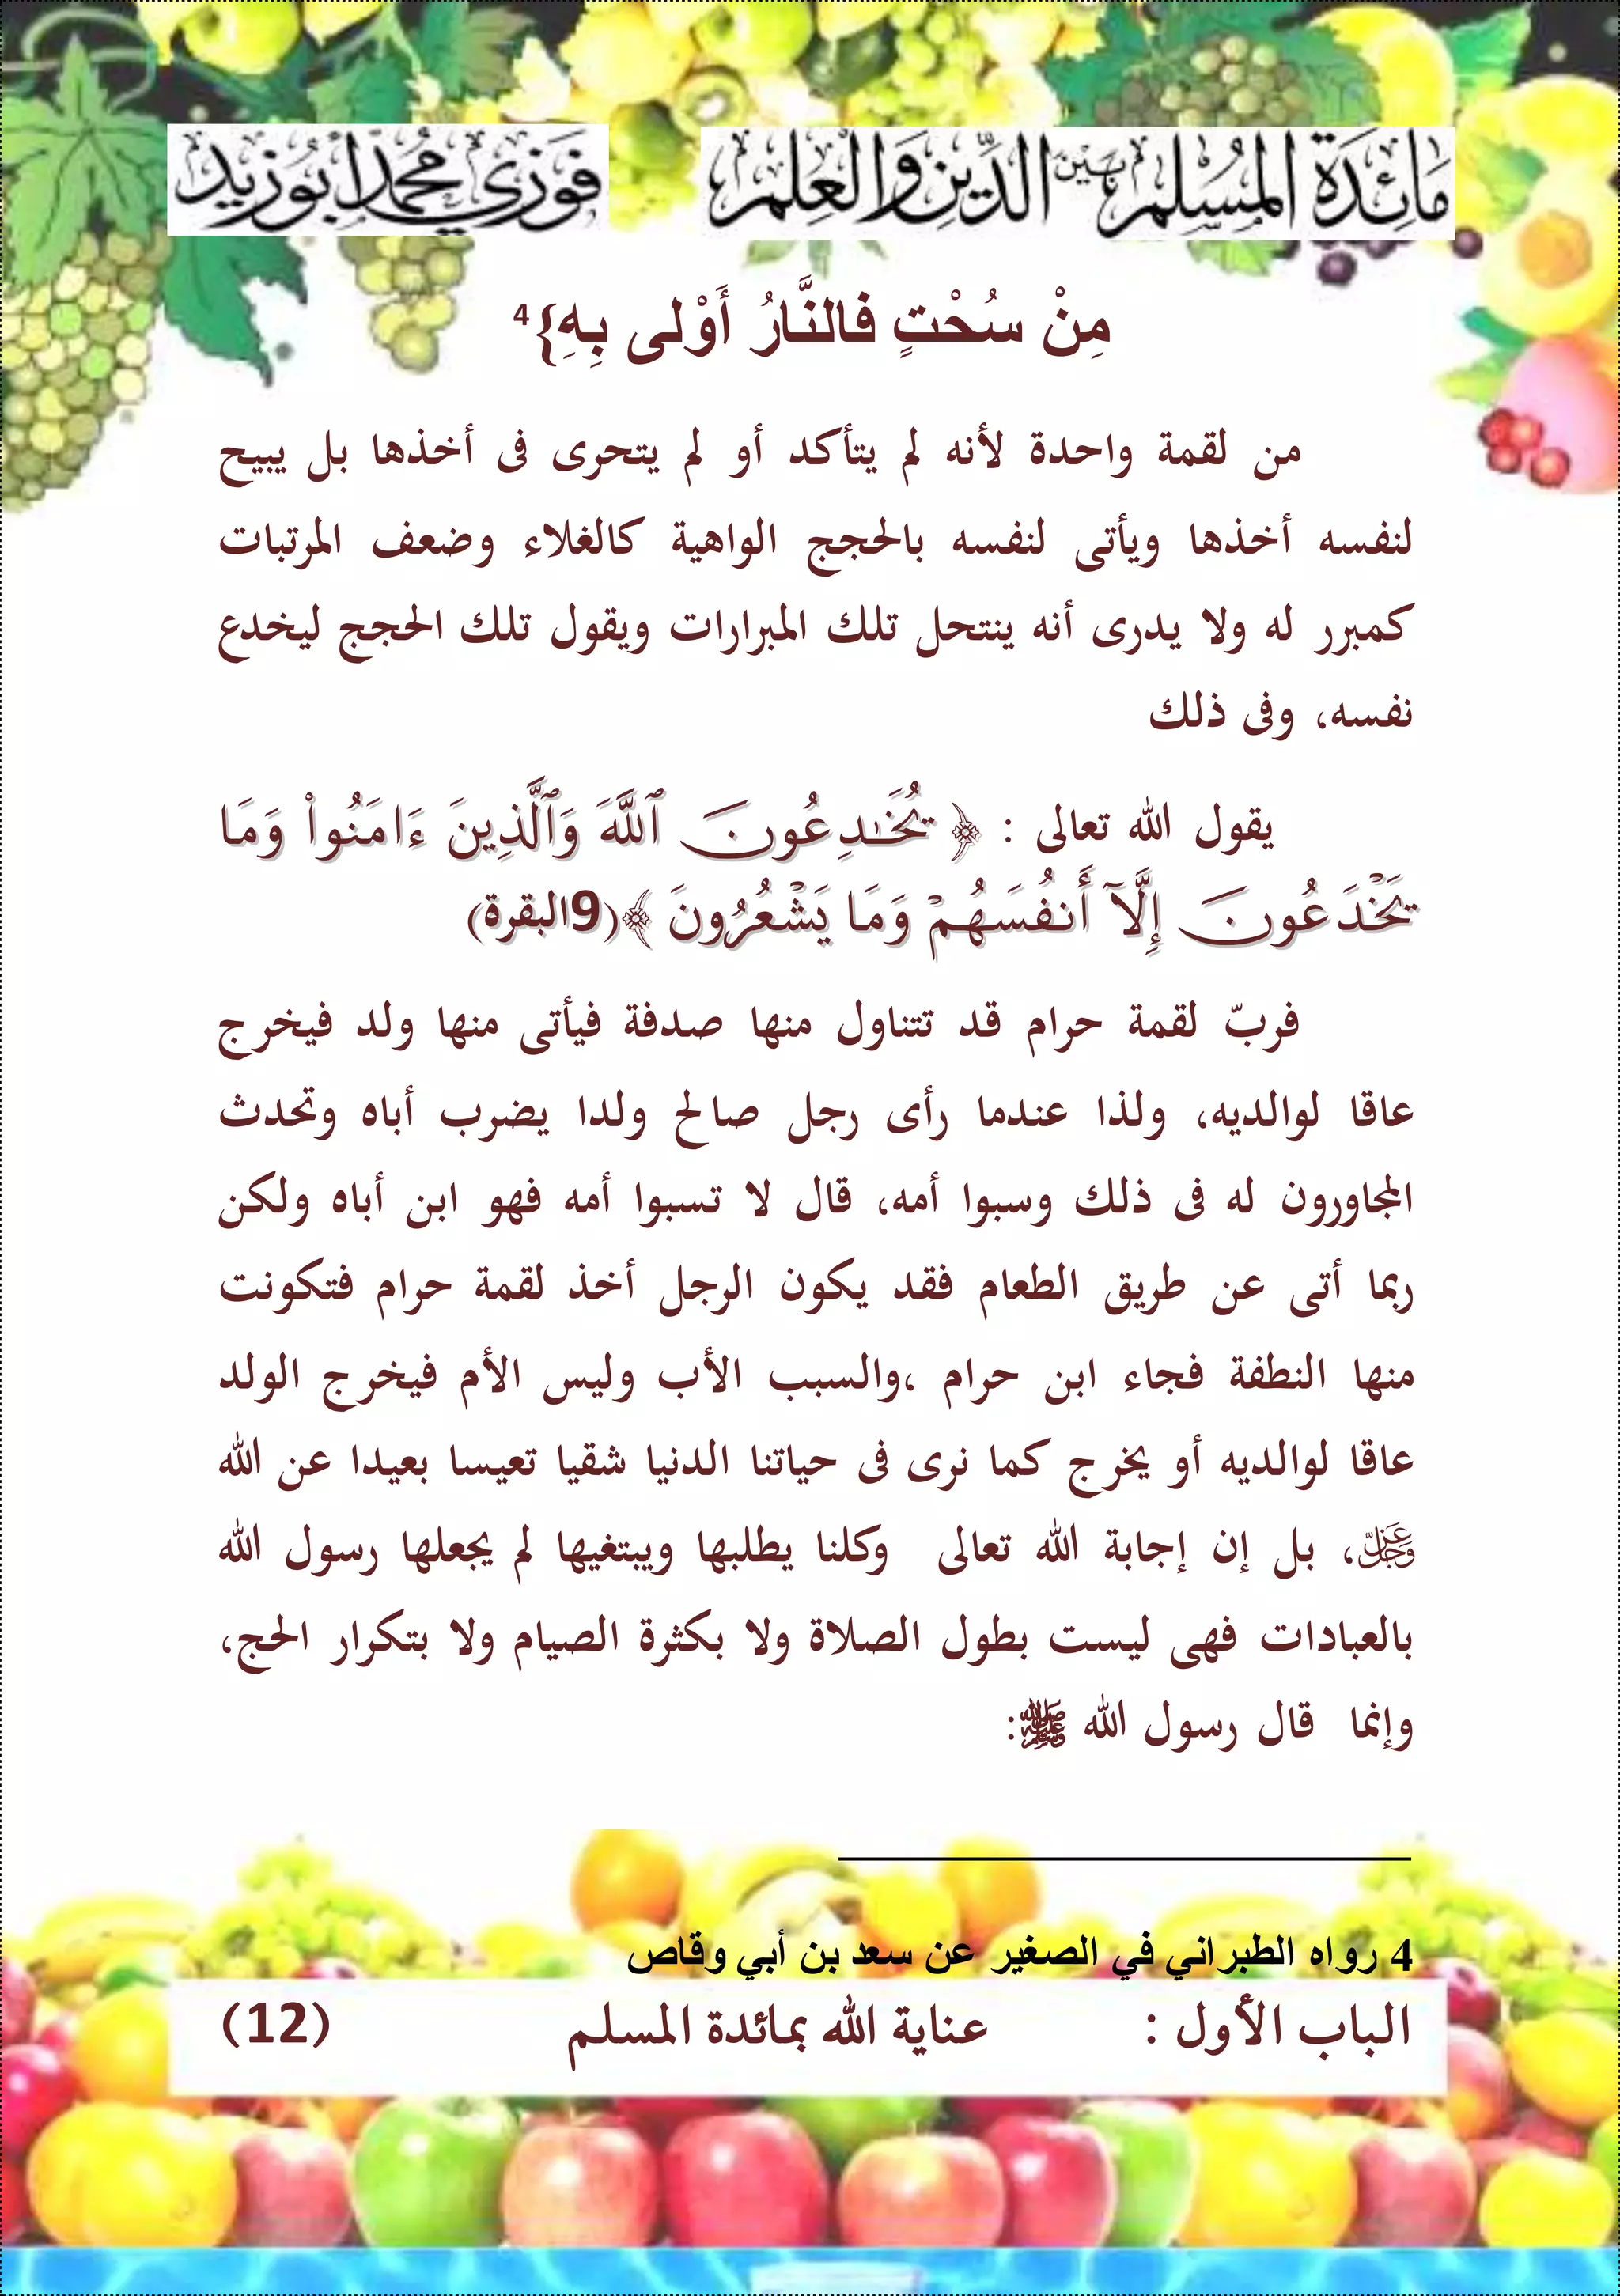 مائدة المسلم بين الدين والعلم
فوزي محمد أبوزيد
مِنْ سُحْتٍ فالنَّارُ أَوْلى بِهِ}4
من لقمة واحدة لأنه لم يتأكد أو لم يتحرى فى أخذها بل يبيح
لنفسه أخذها ويأتى لنفسه بالحجج الواهية كالغلاء وضعف المرتبات
كمبرر له ولا يدرى أنه ينتحل تلك المبرارات ويقول تلك الحجج ليخدع
نفسه، وفى ذلك
يقول الله تعالى : ﴿ يُخَـٰدِعُونَ ٱللَّهَ وَٱلَّذِينَ ءَامَنُوا۟ وَمَا
يَخْدَعُونَ إِلَّآ أَنفُسَهُمْ وَمَا يَشْعُرُونَ ﴾(9البقرة)
فربّ لقمة حرام قد تتناول منها صدفة فيأتى منها ولد فيخرج
عاقا لوالديه، ولذا عندما رأى رجل صالح ولدا يضرب أباه وتحدث
المجاورون له فى ذلك وسبوا أمه، قال لا تسبوا أمه فهو ابن أباه ولكن
ربما أتى عن طريق الطعام فقد يكون الرجل أخذ لقمة حرام فتكونت
منها النطفة فجاء ابن حرام ،والسبب الأب وليس الأم فيخرج الولد
عاقا لوالديه أو يخرج كما نرى فى حياتنا الدنيا شقيا تعيسا بعيدا عن الله
عز وجل، بل إن إجابة الله تعالى وكلنا يطلبها ويبتغيها لم يجعلها رسول الله
بالعبادات فهى ليست بطول الصلاة ولا بكثرة الصيام ولا بتكرار الحج،
وإنما قال رسول الله ﷺ:
4 رواه الطبراني في الصغير عن سعد بن أبي وقاص
الباب الأول : عناية الله بمائدة المسلم (12)